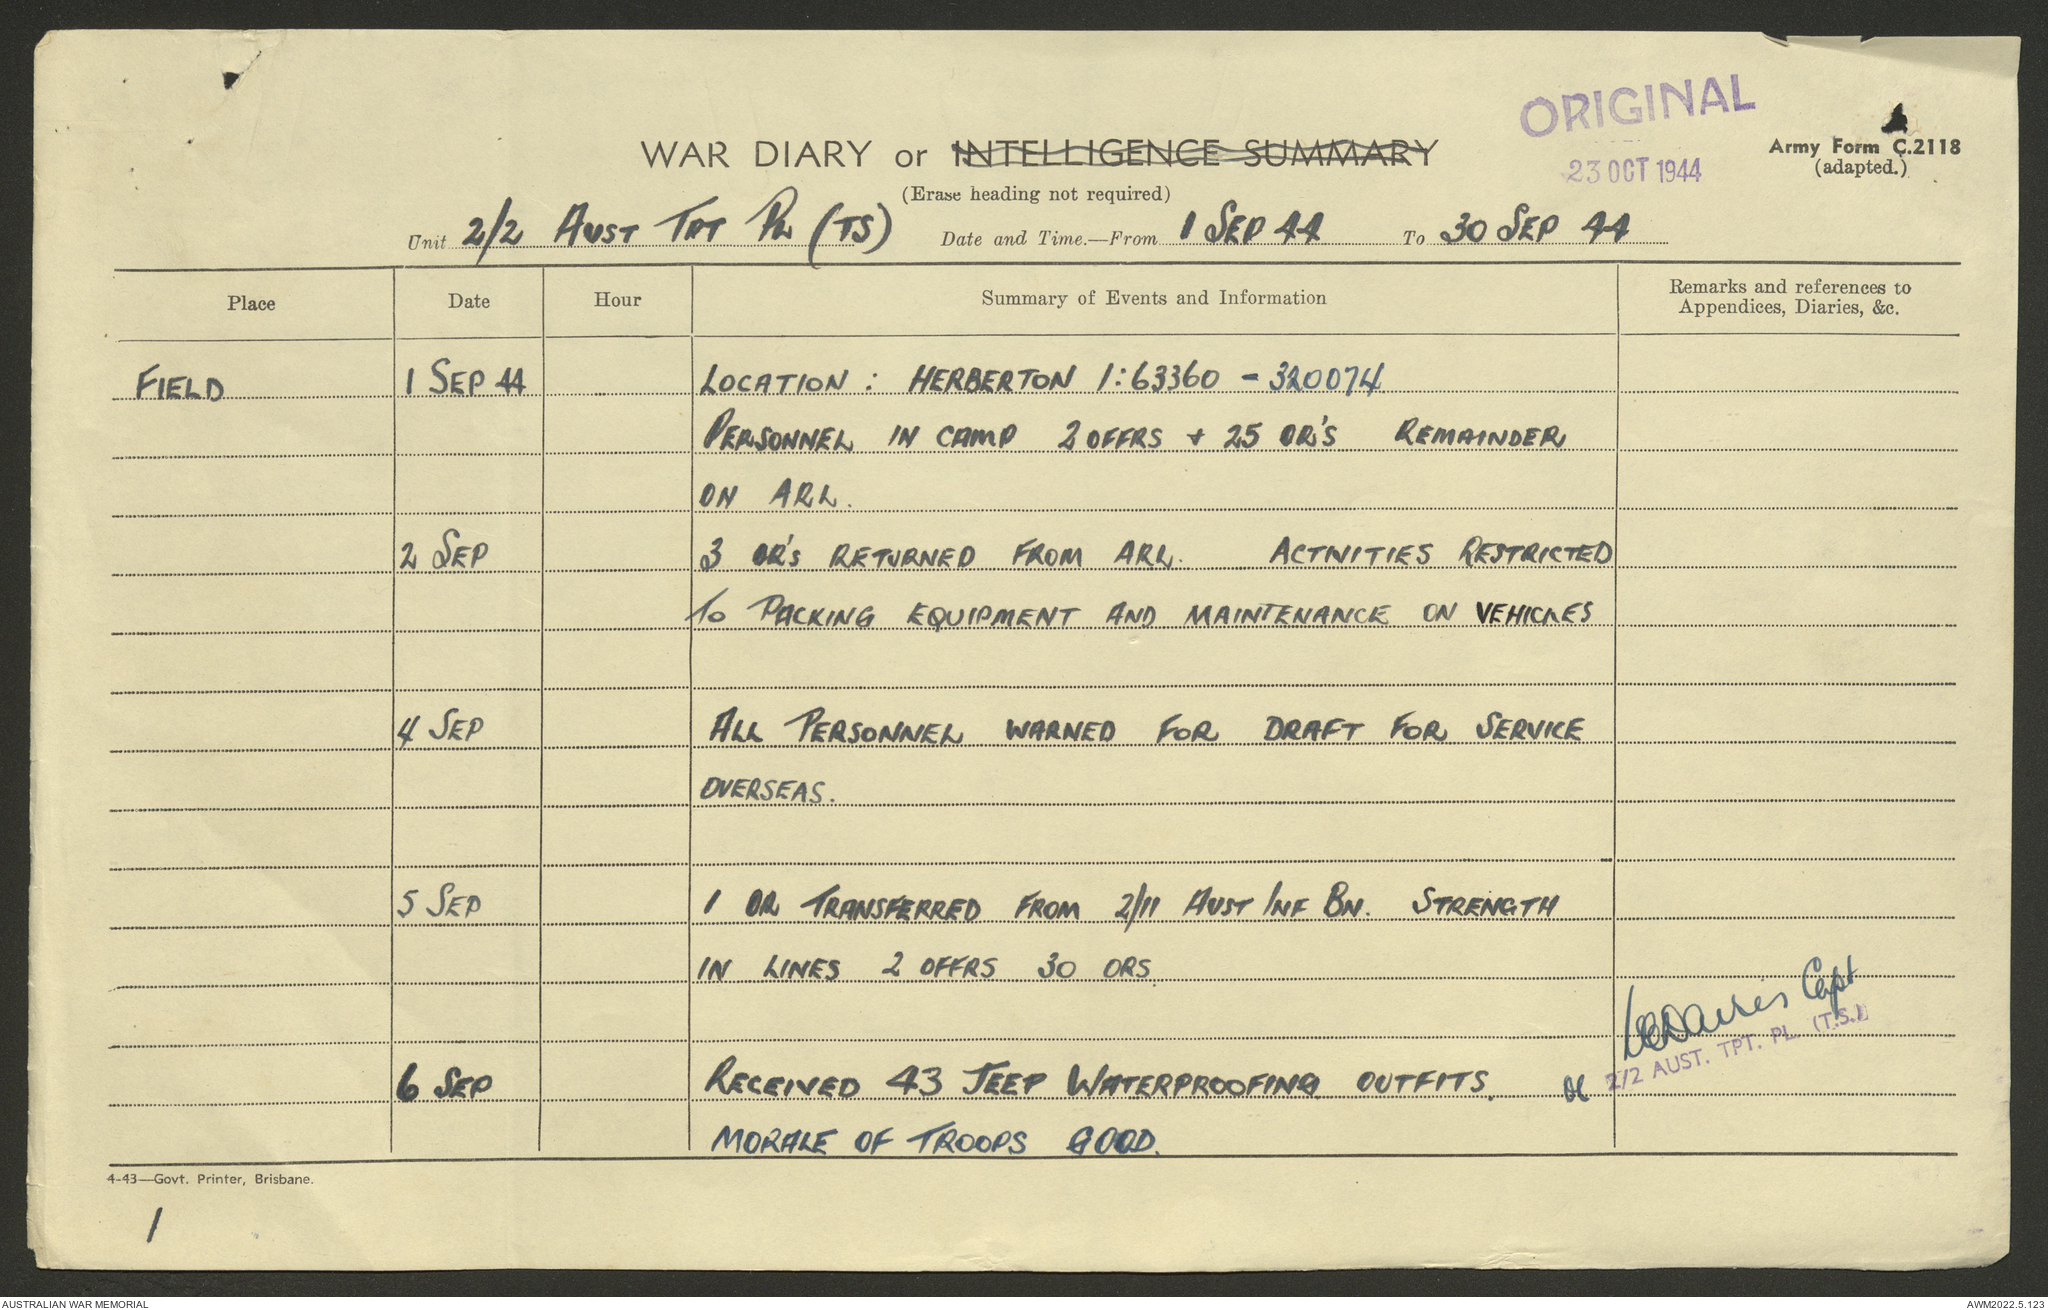 ORIGINAL
WAR DIARY or INTELLIGENCE SUMMARY
Army Form C.2118
(adapted.)
23 OCT 1944
(Erase heading not required)
Unit 2/2 AUST TPT PL (TS) Date and Time.—From 1 SEP 44 To 30 SEP 44
Place Date Hour Summary of Events and Information Remarks and references to
Appendices, Diaries, &c.
FIELD 1 SEP 44 LOCATION : HERBERTON 1:63360 - 320074
PERSONNEL IN CAMP 2 OFFRS + 25 OR'S REMAINDER
ON ARL.
2 SEP 3 OR'S RETURNED FROM ARL. ACTIVITIES RESTRICTED
TO PACKING EQUIPMENT AND MAINTENANCE ON VEHICLES
4 SEP ALL PERSONNEL WARNED FOR DRAFT FOR SERVICE
OVERSEAS.
5 SEP 1 OR TRANSFERRED FROM 2/11 AUST INF BN. STRENGTH
IN LINES 2 OFFRS 30 ORS
Davies Capt
2/2 AUST. TPT. PL. (T.S.)
6 SEP RECEIVED 43 JEEP WATERPROOFING OUTFITS.
MORALE OF TROOPS GOOD.
4-43—Govt. Printer, Brisbane.
1
AUSTRALIAN WAR MEMORIAL AWM2022.5.123